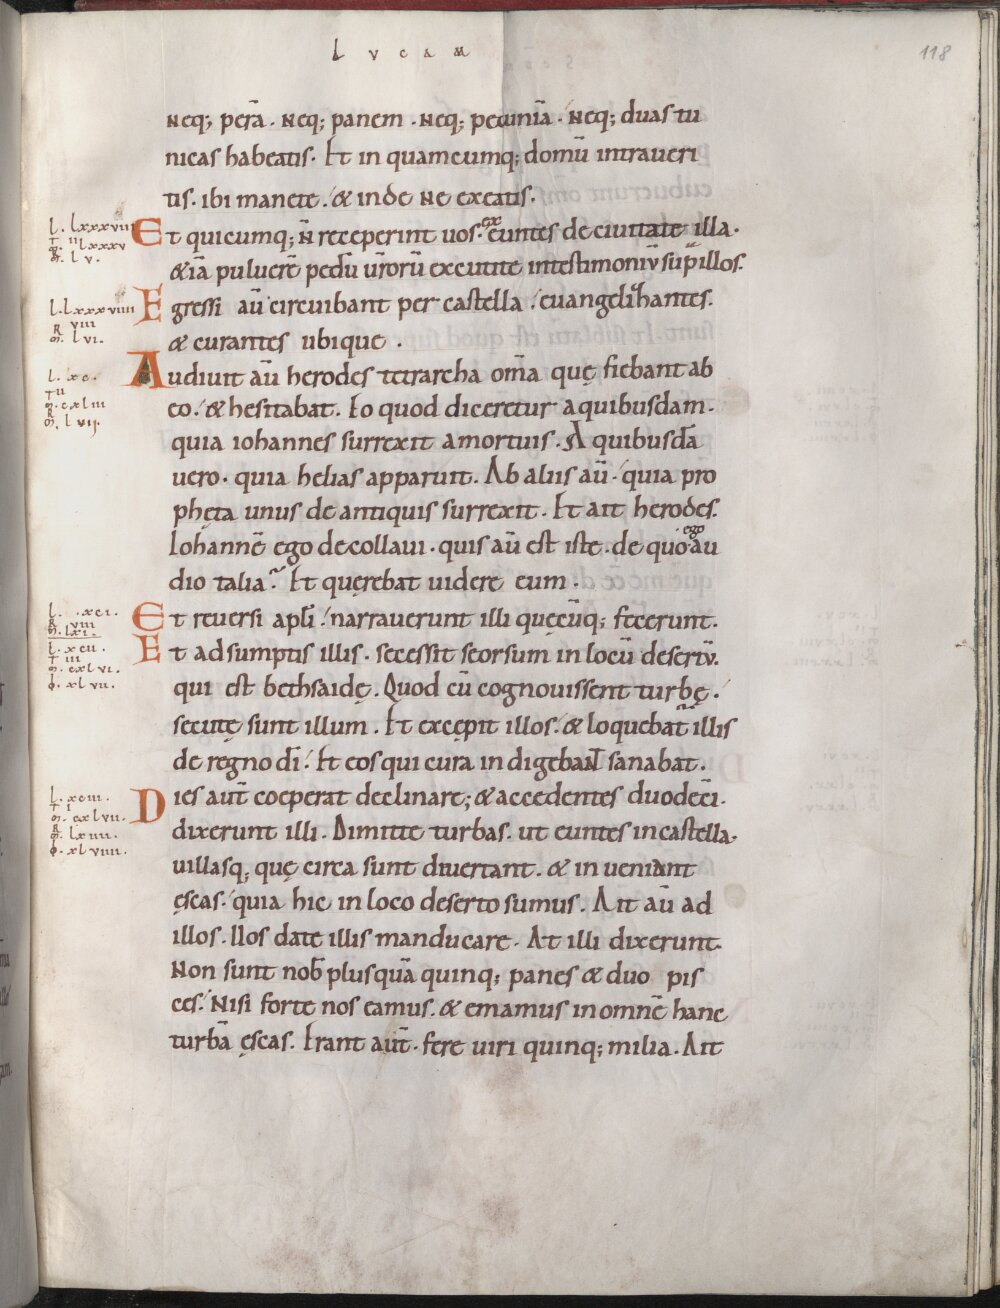 LVCAM
118
neq; perā. neq; panem. neq; pecuniā. neq; duas tu
nicas habeatis. Et in quamcumq; domū intraueri
tis. ibi manete. & inde ne exeatis.
l. lxxxviii
Et quicumq; n̄ receperint uos. exeuntes de ciuitate illa.
m̄. lv.
& iā puluerē pedū ur̄orū excutite intestimoniū sup illos.
l. lxxxviiii
Egressi aū circuibant per castella. euangelihantes.
R viii
m̄. lvi.
& curantes ubique.
l. xc.
Audiuit aū herodes tetrarcha om̄a quę fiebant ab
m̄. cxliii
eo. & hesitabat. Eo quod diceretur aquibusdam.
m̄. lvij.
quia iohannes surrexit amortuis. A quibusdā
uero. quia helias apparuit. Ab aliis aū. quia pro
phęta unus de antiquis surrexit. Et ait herodes.
Iohannē ego decollaui. quis aū est iste. de quo ego au
dio talia? Et quęrebat uidere eum.
l. xci.
R viii
m̄. lxi.
Et reuersi apli narrauerunt illi quęcūq; fecerunt.
l. xcii.
T iii
Et adsumptis illis. secessit seorsum in locū desertū.
m̄. cxlvi.
φ. xlvii.
qui est bethsaidę. Quod cū cognouissent turbę.
secutę sunt illum. Et excępit illos. & loquebat illis
de regno dī. Et eos qui cura indigebant sanabat.
l. xciii.
T i
Dies aut̄ coeperat declinare; & accedentes duodeci.
m̄. cxlvii.
R
m̄. lxiiii.
dixerunt illi. Dimitte turbas. ut euntes incastella.
φ. xlviiii.
uillasq; quę circa sunt diuertant. & inueniant
ęscas. quia hic in loco deserto sumus. Ait aū ad
illos. Uos date illis manducare. At illi dixerunt.
Non sunt nob̄ plusquā quinq; panes & duo pis
ces. Nisi forte nos eamus. & emamus in omnē hanc
turbā ęscas. Erant aut̄. fere uiri quinq; milia. Ait